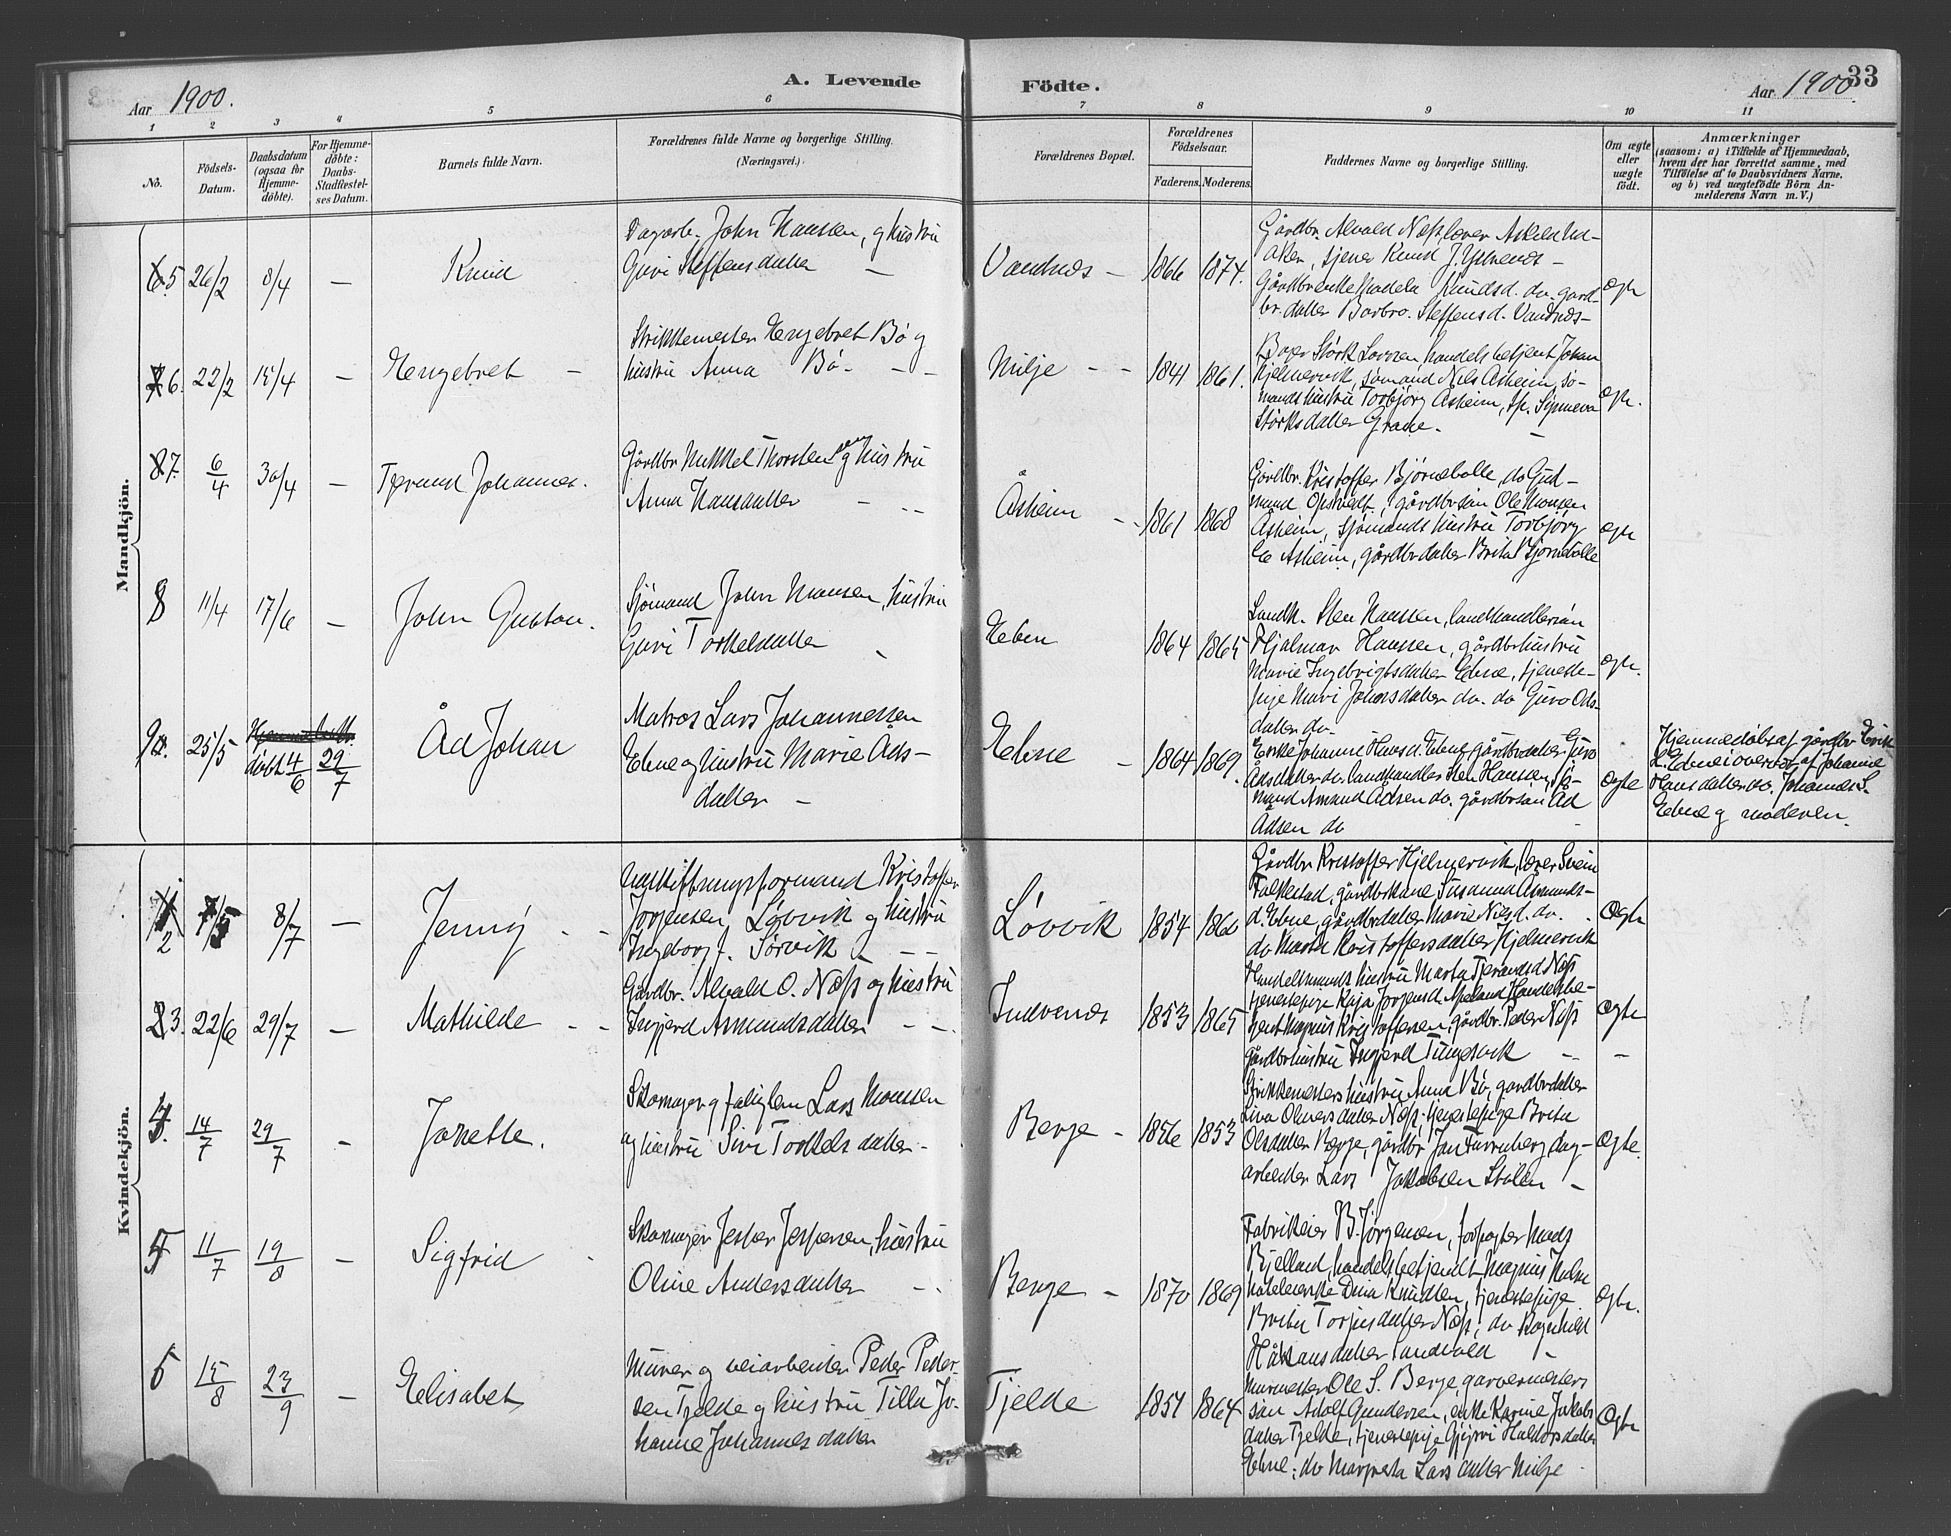 Aar 1900.
A. Levende
Födte.
Aar 1900.
33
1 2 3 4 5 6 7 8 9 10 11
No.
Födsels-
Datum.
Daabsdatum
(ogsaa for
Hjemme-
döbte).
For Hjemme-
döbte:
Daabs-
Stadfæstel-
ses Datum.
Barnets fulde Navn.
Forældrenes fulde Navne og borgerlige Stilling.
(Næringsvei).
Forældrenes Bopæl.
Forældrenes
Födselsaar.
Faderens. Moderens.
Faddernes Navne og borgerlige Stilling.
Om ægte
eller
uægte
födt.
Anmærkninger
(saasom: a) i Tilfælde af Hjemmedaab,
hvem der har forrettet samme, med
Tilföielse af to Daabsvidners Navne.
og b) ved uægtefödte Börn An-
melderens Navn m. V.)
Mandkjön.
5 26/2 8/4 —
Knud
Dagarb. John Hansen, og hustru
Guri Steffensdatter —
Vandnes —
1866 1874.
Gårdbr. Alvald Næss, lærer Askild
Aker, tjener Knud J.
Gårdbrenke Madela Knudsd. do. gard-
br. datter Barbro Steffensd. Vandnes —
ægte
6. 22/2 15/4 —
Engebret —
Strikkemester Engebret Bø og
hustru Anna Bø — —
Milje — —
1841 1861.
Størk Larsen, handelsbetjent Johan
Hjelmervik, sømand Nils Åsheim, sø-
mandshustru Torbjørg Åsheim, Synneva
Størksdatter Grane. —
ægte.
7. 6/4 30/4 —
Tjerand Johannes.
Gårdbr. Mikkel Thorsten og hustru
Anna Hansdatter —
Åsheim —
1861 1868
Gårdbr. Kristoffer Bjørnebolle, do Gud-
mund Opstvedt, gårdbrsøn Ole Monsen
Åsheim, sjømandshustru Torbjørg
Åsheim, gårdbrdatter Brita Bjørnebolle
ægte
8 11/4 17/6 —
John Gustav.
Sjømand John Monsen, hustru
Guri Torkelsdatter
Ebne
1864 1865
Landh. Sten Hanssen, landhandlersøn
Hjalmar Hanssen, gårdbrhustru
Marie Ingebrigtsdatter Ebne, tjeneste-
pige Mari Johansdatter do. do Guro Ads-
datter do.
ægte.
9. 25/5
døbt 4/6
29/7
Åd Johan
Matros Lars Johannessen
Ebne og hustru Marie Ads-
datter —
Ebne —
1864 1869.
Enke Johanne Hansd. Ebne, gårdbrdatter Guro
Adsdatter do. landhandler Sten Hanssen, sjø-
mand Amund Adsen do. gårdbrsøn Ad
Adsen do
ægte
Hjemmedøbt af gårdbr Erik
L. Ebne i overvær af Johanne
Hansdatter do. Johannes S.
Ebne og moderen.
Kvindekjön.
2 7/5 8/7 —
Jenny — —
Udskiftningsformand Kristoffer
Jørgensen Løvvik og hustru
Ingeborg J. Sørvik — — —
Løvvik
1854 1860
Gårdbr Kristoffer Hjelmervik, lærer Svein
Falkestad, gårdbrkone Susanna Asmunds-
d. Ebne, gårdbrdatter Marie Nilsd. do.
do Marta Kristoffersdatter Hjelmervik
ægte
3. 22/6 29/7 —
Mathilde — —
Gårdbr. Alvald O. Næss og hustru
Ingjerd Asmundsdatter — —
Indrenæs
1853 1865
Handelsmands hustru Marta Tjerandsd Næss
tjenestepige Kaja Jørgensd. Apeland Handelsbe-
tjent Magnus Kristoffersen, gårdbr. Peder Næss
gårdbrhustru Ingjerd Tungesvik —
ægte
—
4. 14/7 29/7 —
Janette.
Skomager og Lars Monsen
og hustru Siri Torkelsdatter —
Berge —
1856 1853
Strikkemesters hustru Anna Bø, gardbrdatter
Lina Olmersdatter Næss, tjenestepige Brita
Olsdatter Berge, gårdbr Jan dag-
arbeider Lars Jakobsen Stølen —
ægte.
5 11/7 19/8 —
Sigfrid
Skomager Jesper Jespersen, hustru
Oline Andersdatter —
Berge —
1870 1869
Fabrikeier B. Jørgensen, forpagter Mads
Bjelland, handelsbetjent Magnus
Dina Knudsen, tjenestepige
Brita Torjusdatter Næss, do Ragnhild
Håkansdatter Sandvold —
ægte.
6 15/8 23/9 —
Elisabet
Murer og veiarbeider Peder Peder-
sen Tjelde og hustru Tilla Jo-
hanne Johannesdatter
Tjelde
1851 1864
Murmester Ole S. Berge, garvermesters
søn Adolf Gundersen, enke Karine Jakobs
datter Tjelde, tjenestepige Gjyri Haldorsdatter
Ebne: do Margreta Larsdatter Milje
ægte